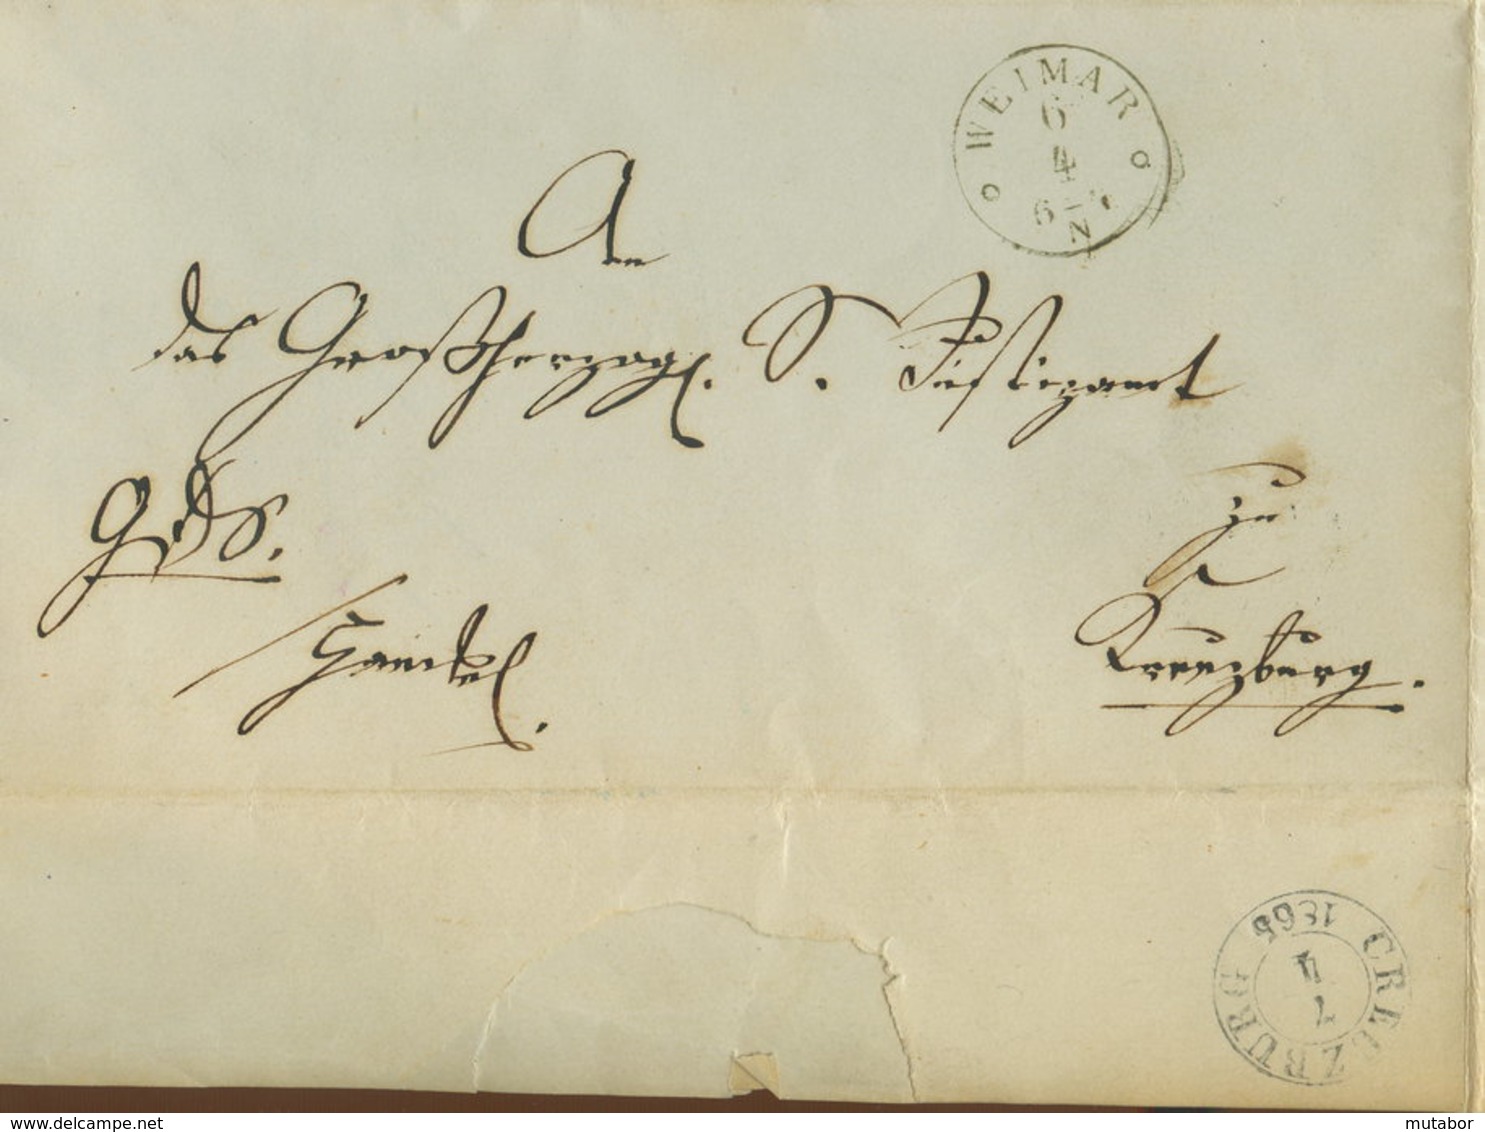 WEIMAR
6
4
6 - 7
N
An
das Großherzogl. S. Justizamt
zu
GDS.
Kreuzburg.
CREUZBURG
1865
7
4
www.delcampe.net
mutabor